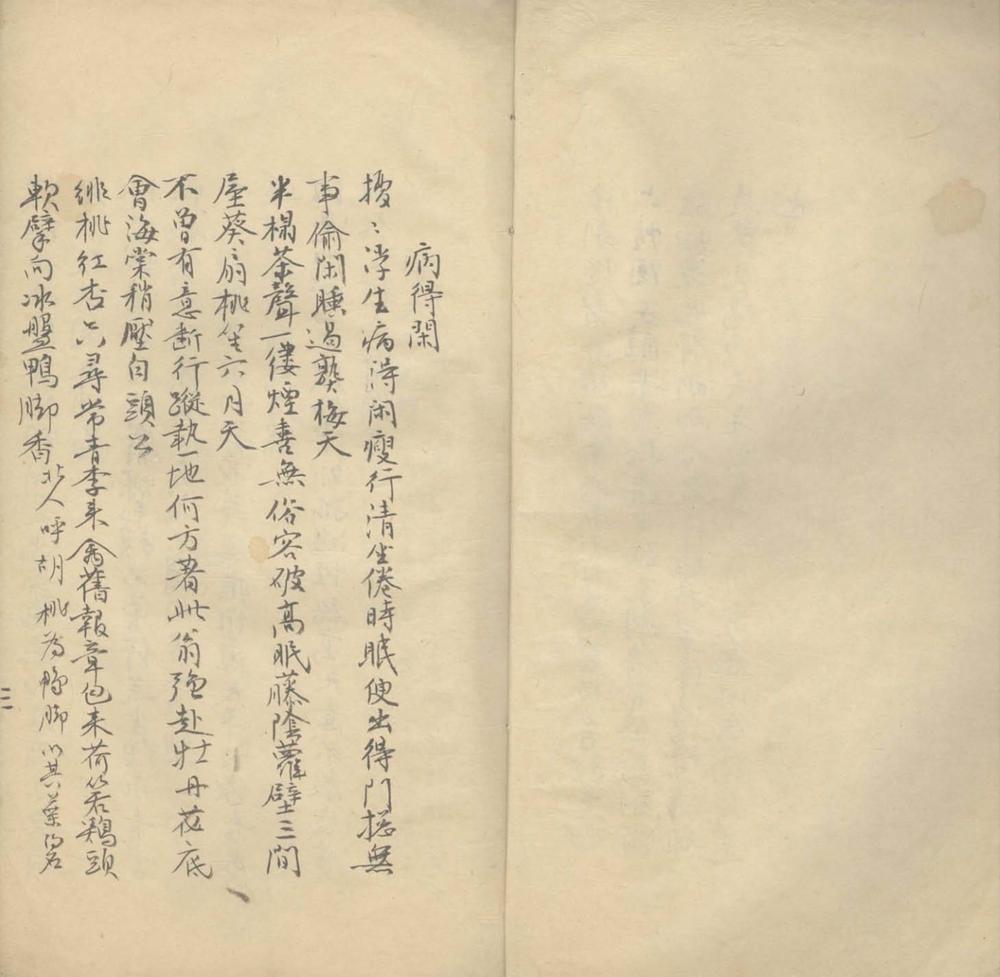 病得閑
擾〻浮生病得閑瘦行清坐倦時眠便出得門摠無
事偷閑睡過熟梅天
半榻茶聲一縷煙喜無俗客破高眠藤陰蘿壁三間
屋葵扇桃笙六月天
不曾有意斷行蹤執一地何方著此翁強赴牡丹花底
會海棠稍壓白頭公
緋桃紅杏亦尋常青李來禽舊報章包来荷箬鷄頭
軟擘向冰盤鴨脚香北人呼胡桃為鴨脚以其葉得名
三